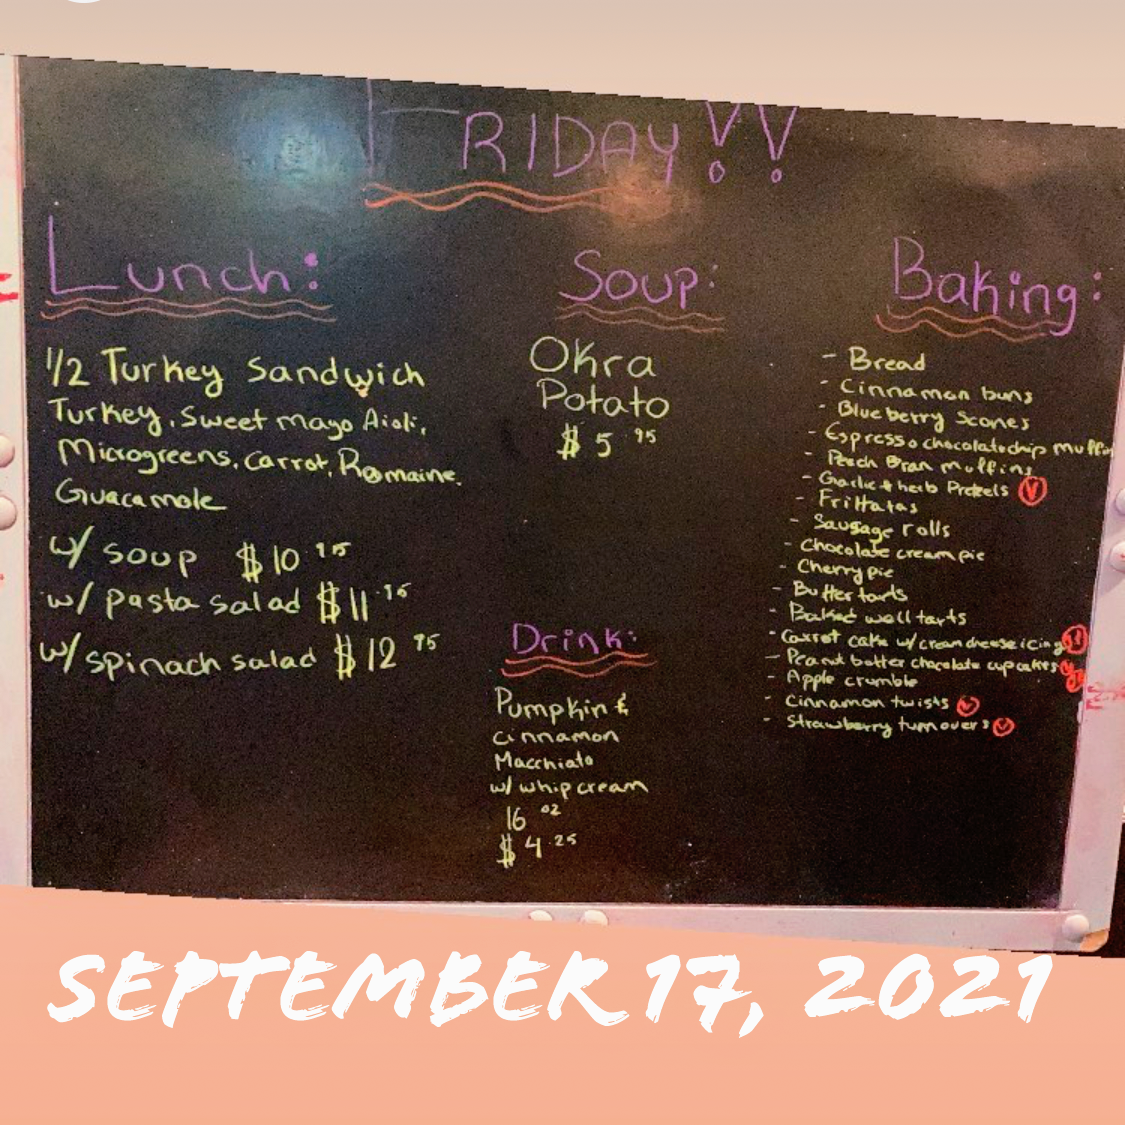 FRIDAY!!
Lunch:
1/2 Turkey Sandwich
Turkey, Sweet mayo Aioli,
Microgreens, Carrot, Romaine,
Guacamole
w/ soup $10.95
w/ pasta salad $11.95
w/ spinach salad $12.95
Soup:
Okra
Potato
$5.95
Drink:
Pumpkin &
cinnamon
Macchiato
w/ whip cream
16 oz
$4.25
Baking:
- Bread
- Cinnamon buns
- Blueberry Scones
- Espresso chocolate chip muffin
- Peach Bran muffins
- Garlic + herb Pretzels V
- Frittatas
- Sausage rolls
- Chocolate cream pie
- Cherry pie
- Butter tarts
- Baked well tarts
- Carrot cake w/ cream cheese icing
- Peanut butter chocolate cupcakes
- Apple crumble
- Cinnamon twists V
- Strawberry turnovers V
SEPTEMBER 17, 2021